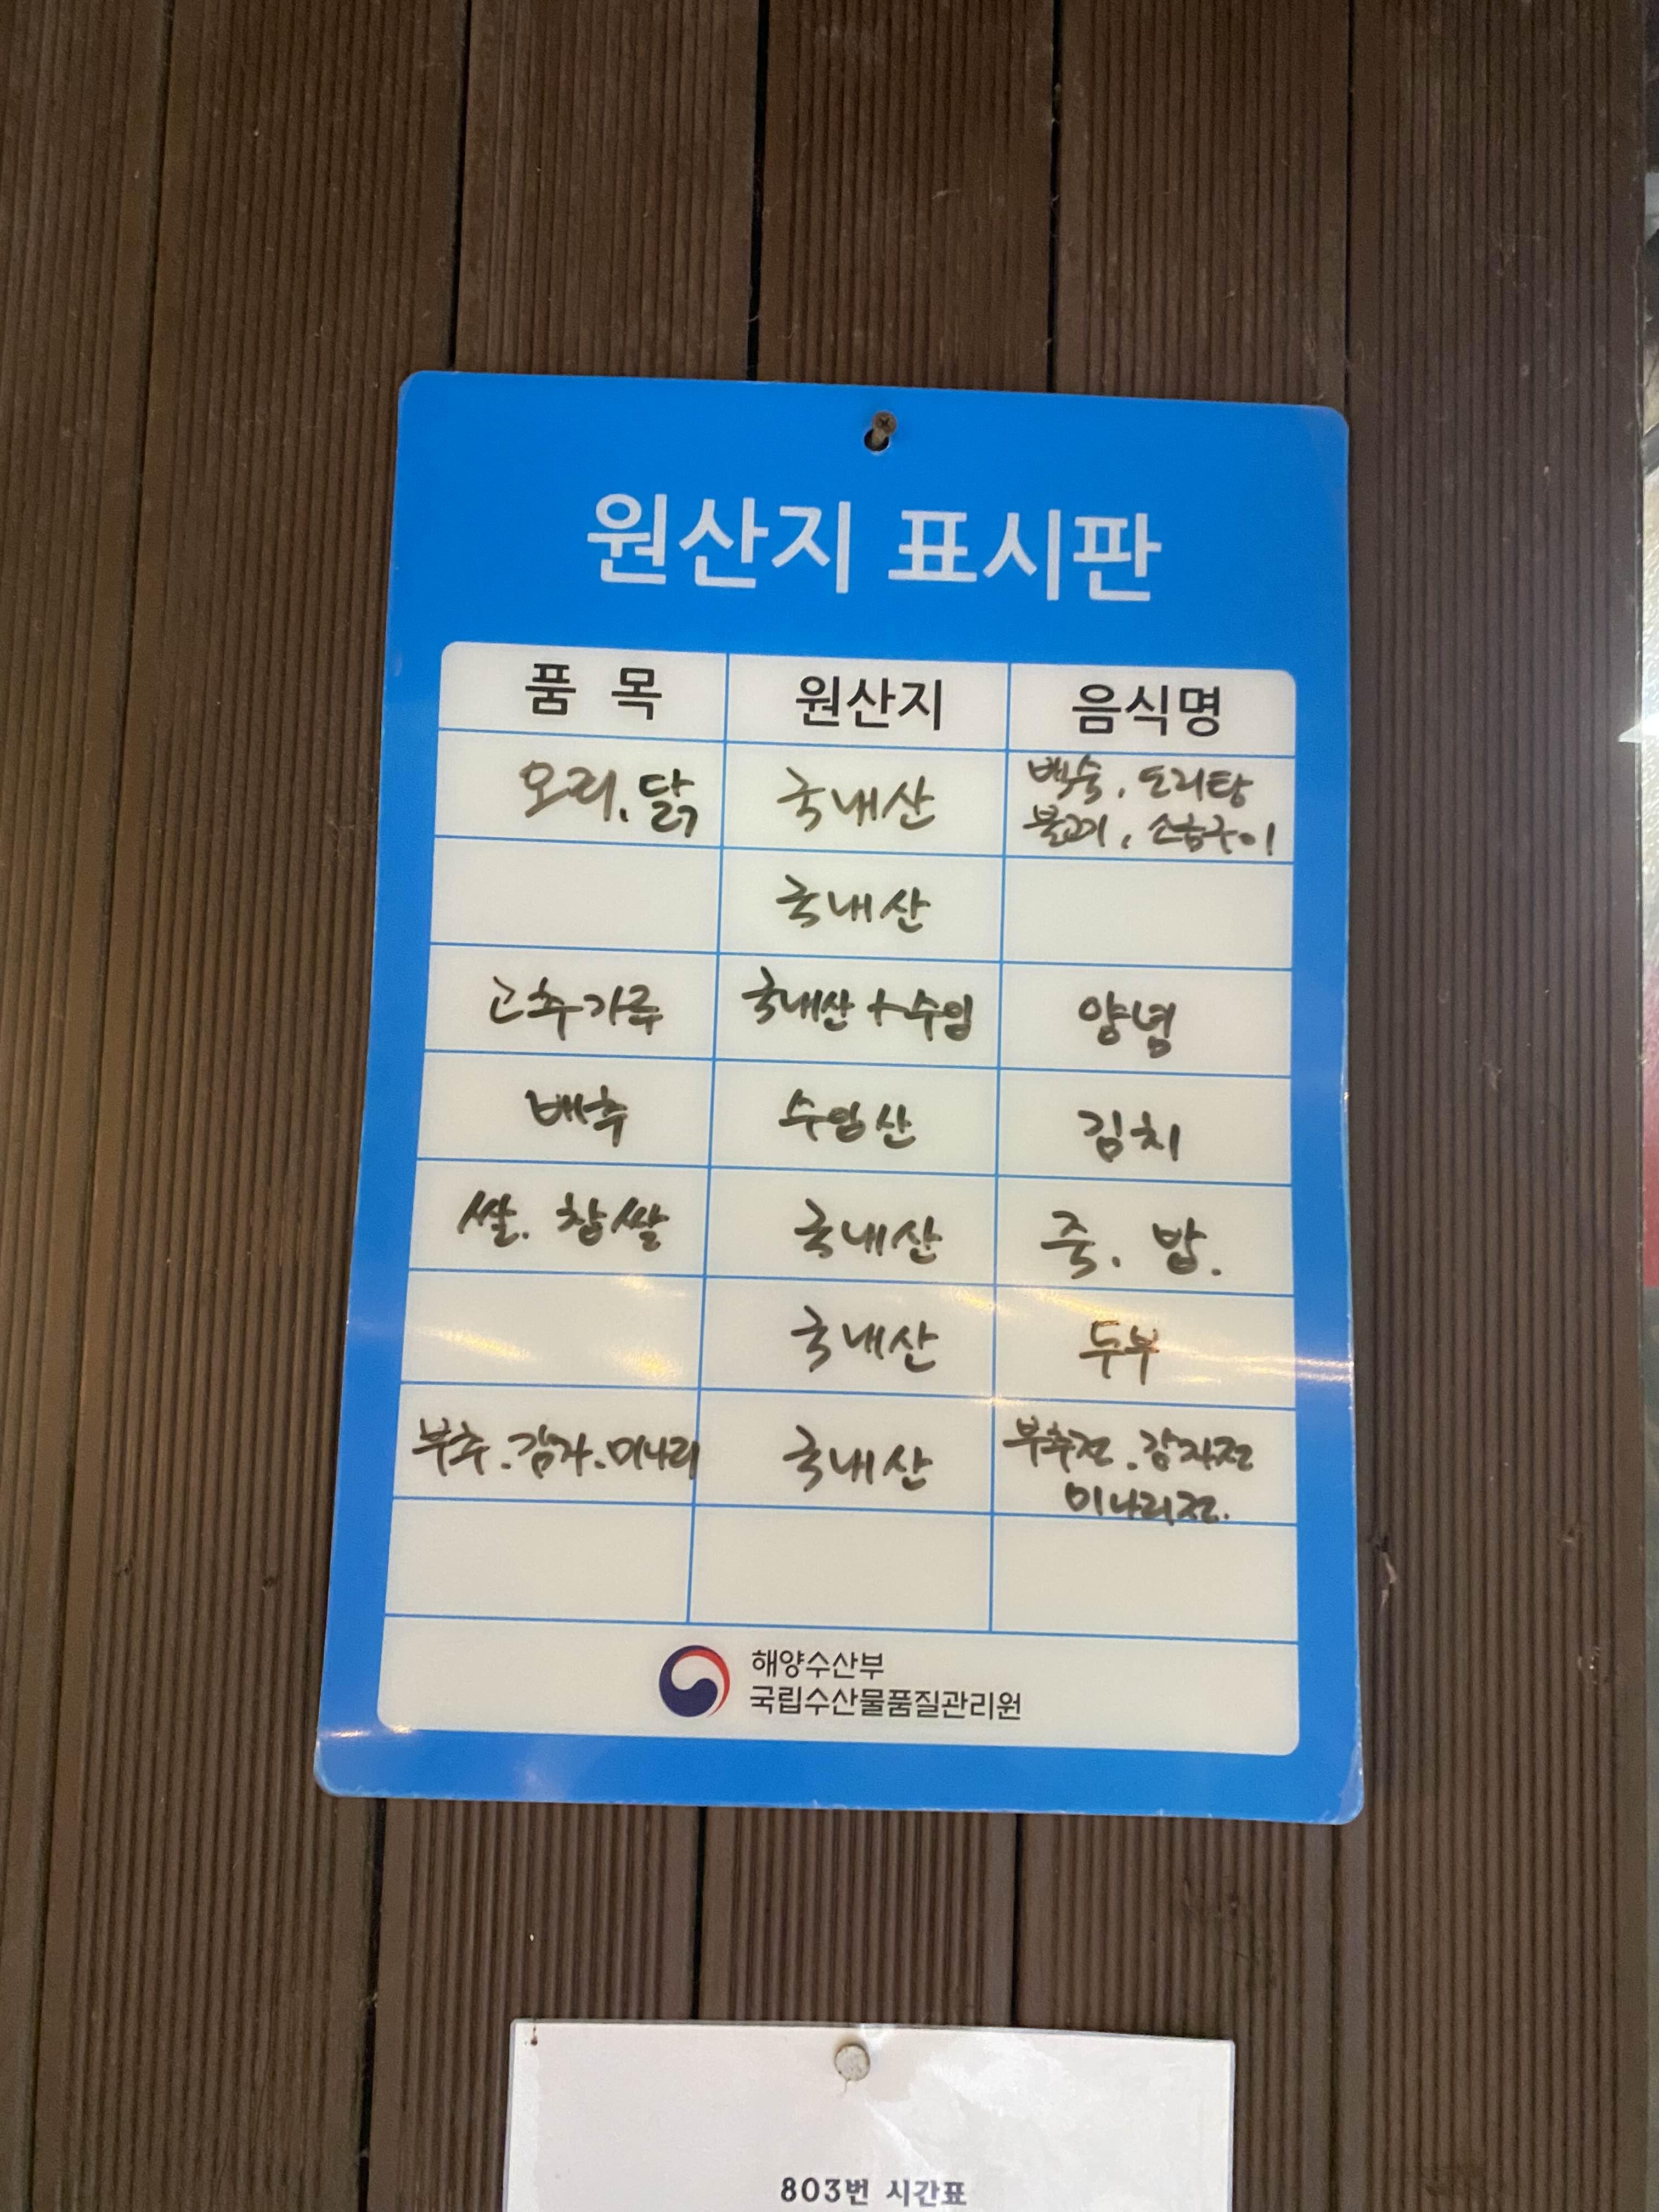 원산지 표시판
품 목 원산지 음식명
오리. 닭 국내산 백숙. 도리탕
불고기, 소금구이
국내산
고추가루 국내산+수입 양념
배추 수입산 김치
쌀. 찹쌀 국내산 죽. 밥.
국내산 두부
부추.감자.미나리 국내산 부추전.감자전
미나리전.
해양수산부
국립수산물품질관리원
803번 시간표